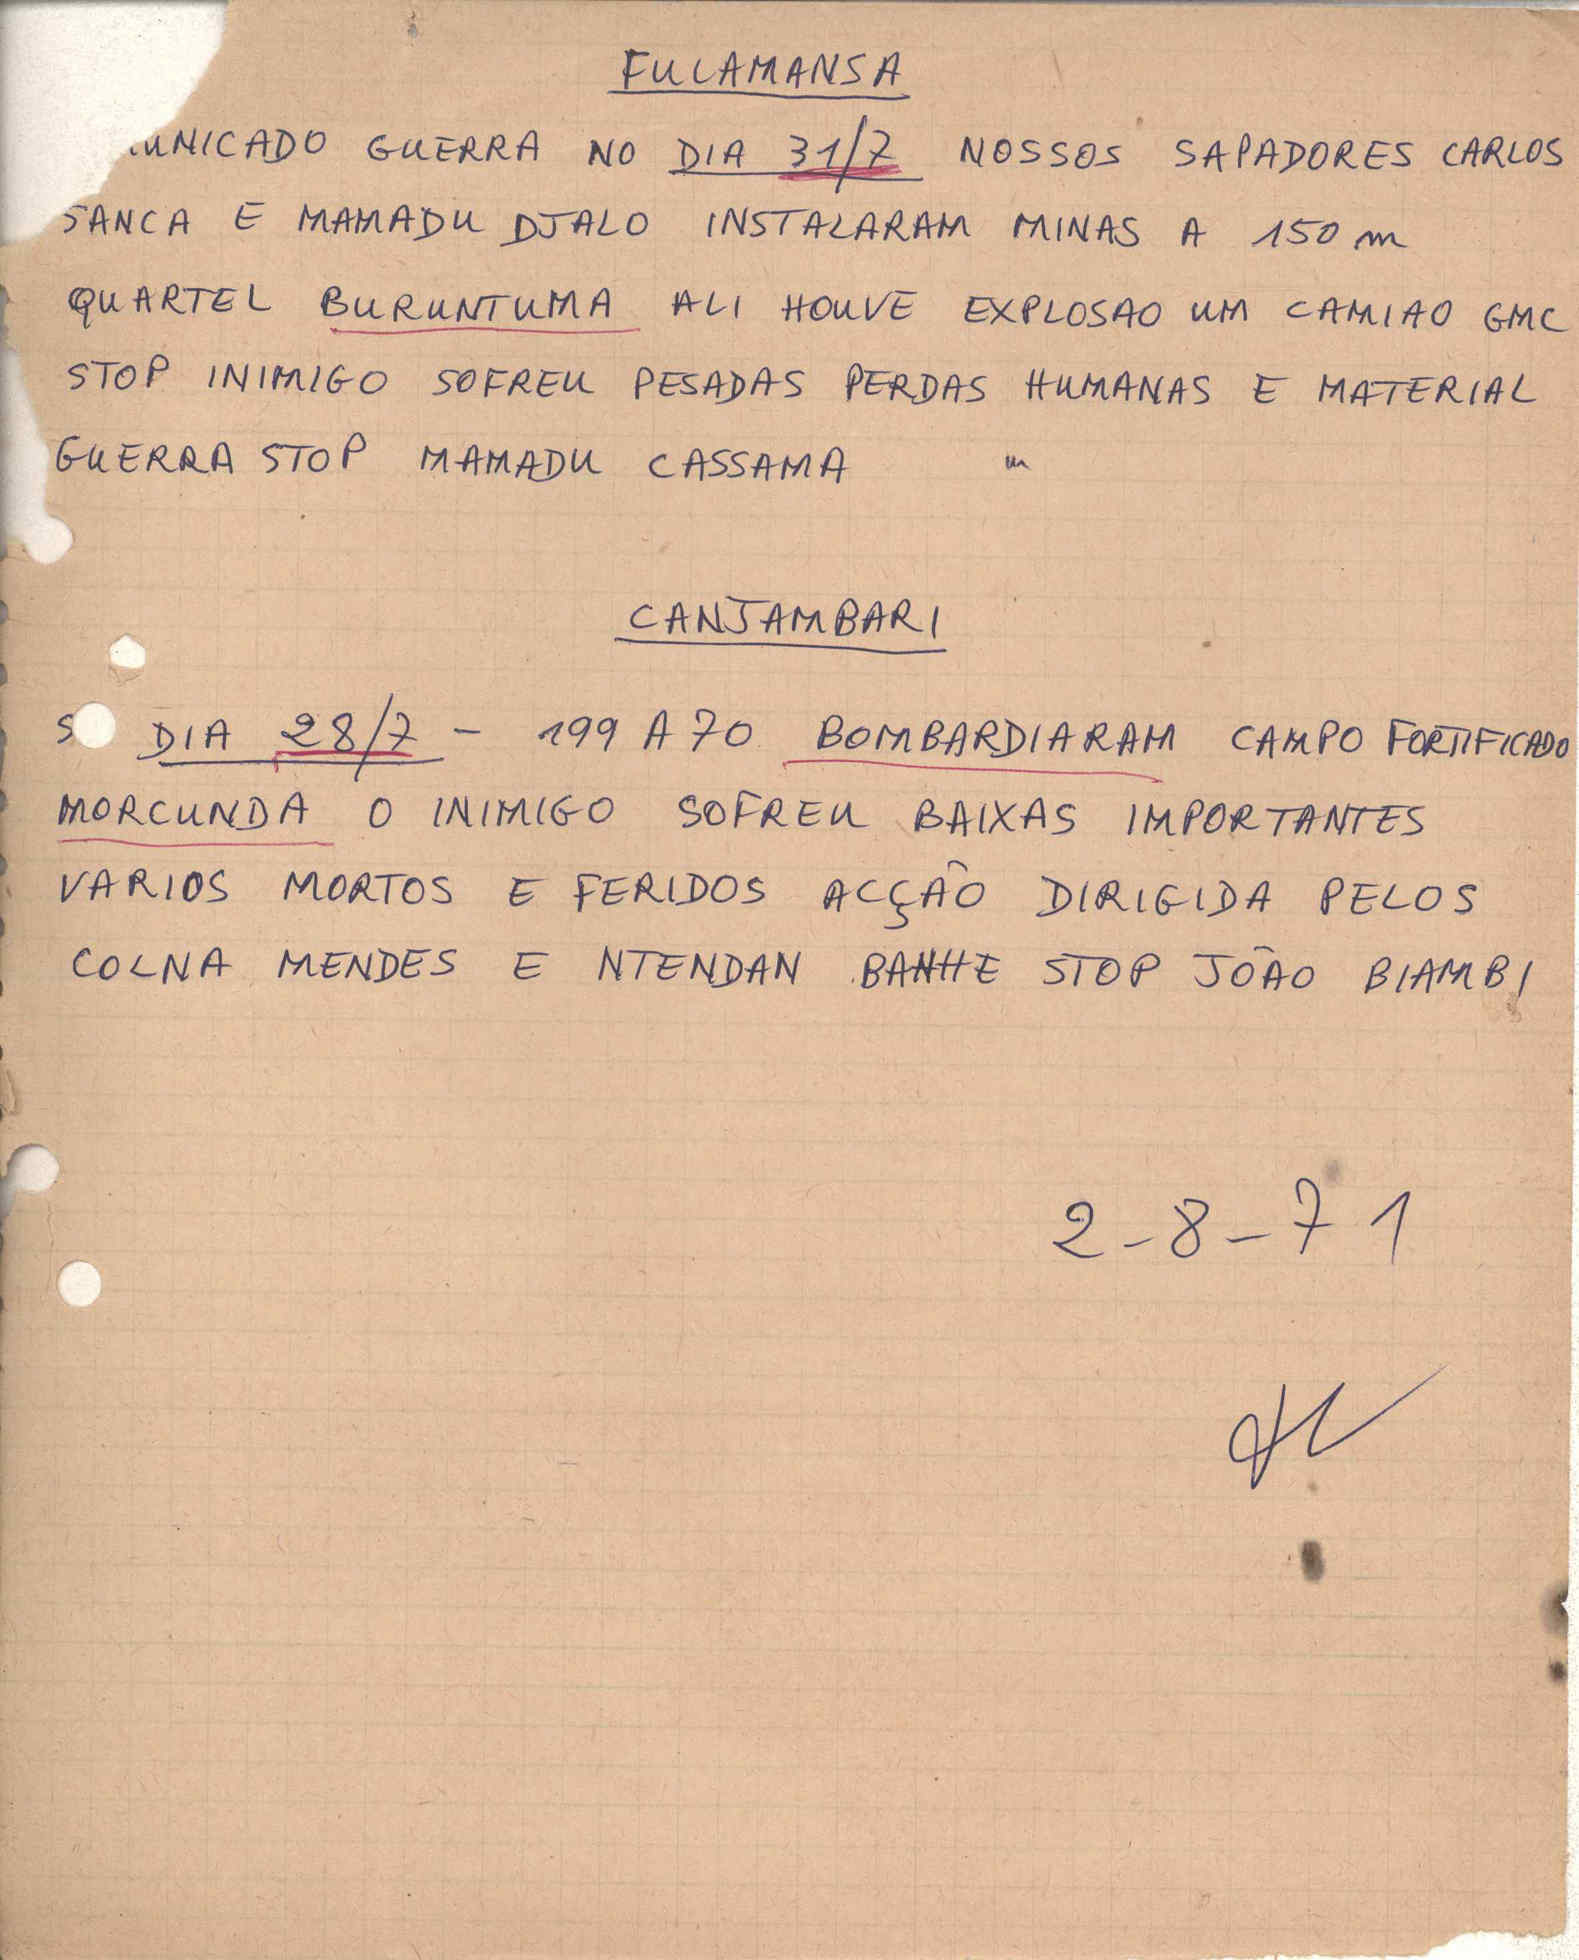 FULAMANSA
UNICADO GUERRA NO DIA 31/7 NOSSOS SAPADORES CARLOS
SANCA E MAMADU DJALO INSTALARAM MINAS A 150 m
QUARTEL BURUNTUMA ALI HOUVE EXPLOSAO UM CAMIAO GMC
STOP INIMIGO SOFREU PESADAS PERDAS HUMANAS E MATERIAL
GUERRA STOP MAMADU CASSAMA
CANJAMBARI
S DIA 28/7 - 199 A 70 BOMBARDIARAM CAMPO FORTIFICADO
MORCUNDA O INIMIGO SOFREU BAIXAS IMPORTANTES
VARIOS MORTOS E FERIDOS ACÇÃO DIRIGIDA PELOS
COLNA MENDES E NTENDAN BANHE STOP JOÃO BIAMBI
2-8-71